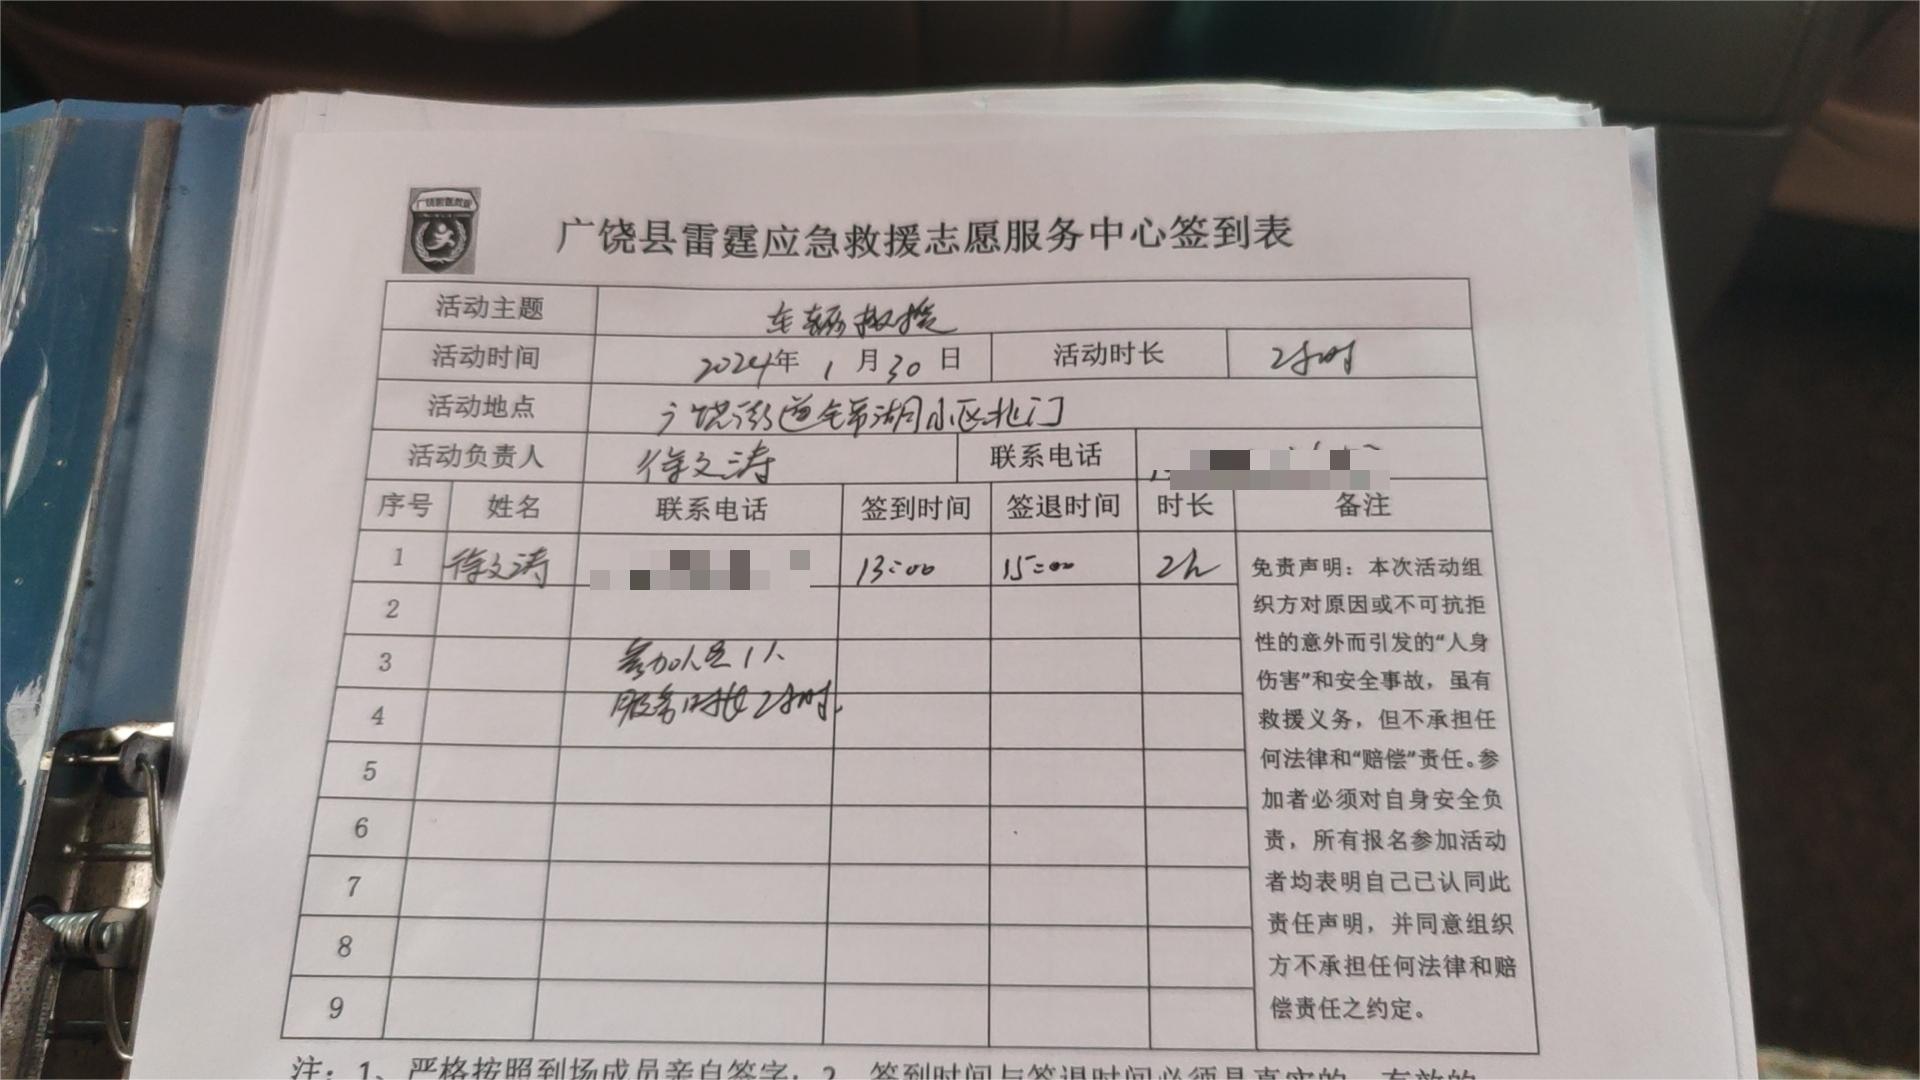 广饶县雷霆应急救援志愿服务中心签到表
活动主题 车辆救援
活动时间 2024年 1 月 30 日 活动时长 2小时
活动地点 广饶街道全帝湖小区北门
活动负责人 徐文涛 联系电话
序号 姓名 联系电话 签到时间 签退时间 时长 备注
1 徐文涛 13:00 15:00 2h
2
3 参加人员1人
4 服务时长2小时.
5
6
7
8
9
免责声明：本次活动组
织方对原因或不可抗拒
性的意外而引发的“人身
伤害”和安全事故，虽有
救援义务，但不承担任
何法律和“赔偿”责任。参
加者必须对自身安全负
责，所有报名参加活动
者均表明自己已认同此
责任声明，并同意组织
方不承担任何法律和赔
偿责任之约定。
注：1、严格按照到场成员亲自签字；2、签到时间与签退时间必须是真实的、有效的